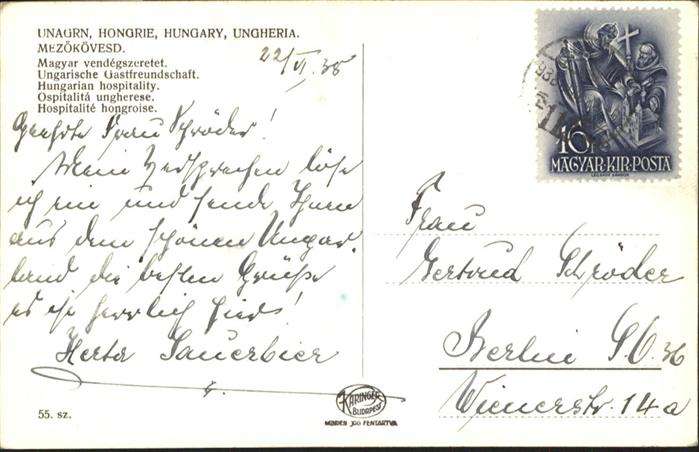 UNAGRN, HONGRIE, HUNGARY, UNGHERIA.
MEZŐKÖVESD.
Magyar vendégszeretet.
Ungarische Gastfreundschaft.
Hungarian hospitality.
Ospitalitá ungherese.
Hospitalité hongroise.
22/VI. 38
Geehrte Frau Schröder!
Mein Versprechen löse
ich ein und sende Ihnen
aus dem schönen Ungar-
land die besten Grüße
es ist herrlich hier!
Herta Sauerbier
55. sz.
KARINGER
BUDAPEST
MINDEN JOG FENTARTVA
938
16f
MAGYAR·KIR·POSTA
Frau
Gertrud Schröder
Berlin SO. 36
Wienerstr. 14a